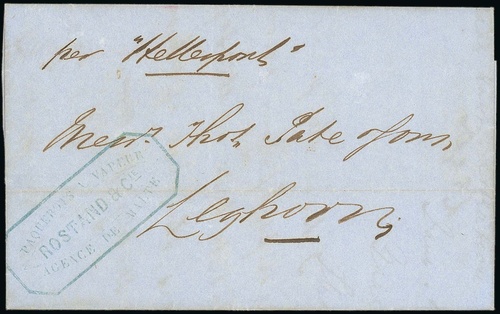 per "Hellespont"
Messrs. Thos. Pate & Sons
Leghorn
PAQUEBOTS A VAPEUR
ROSTAND & Cie
AGENCE DE MALTE